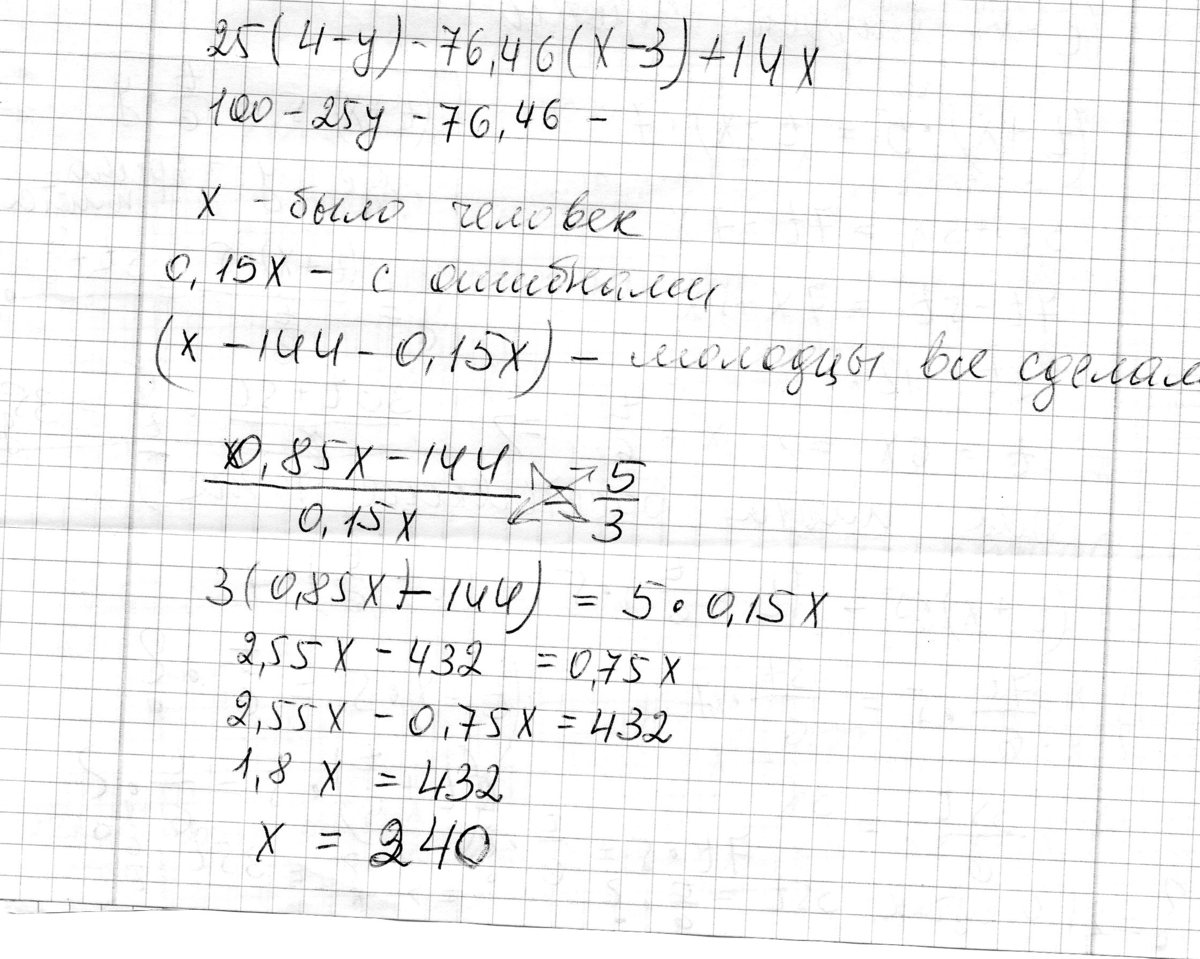 25(4-y)-76,46(x-3)+14x
100-25y-76,46-
x - было человек
0,15x - с ошибками
(x-144-0,15x) - молодцы все сделал
0,85x-144 / 0,15x = 5/3
3(0,85x-144) = 5·0,15x
2,55x-432 = 0,75x
2,55x-0,75x=432
1,8x = 432
x = 240